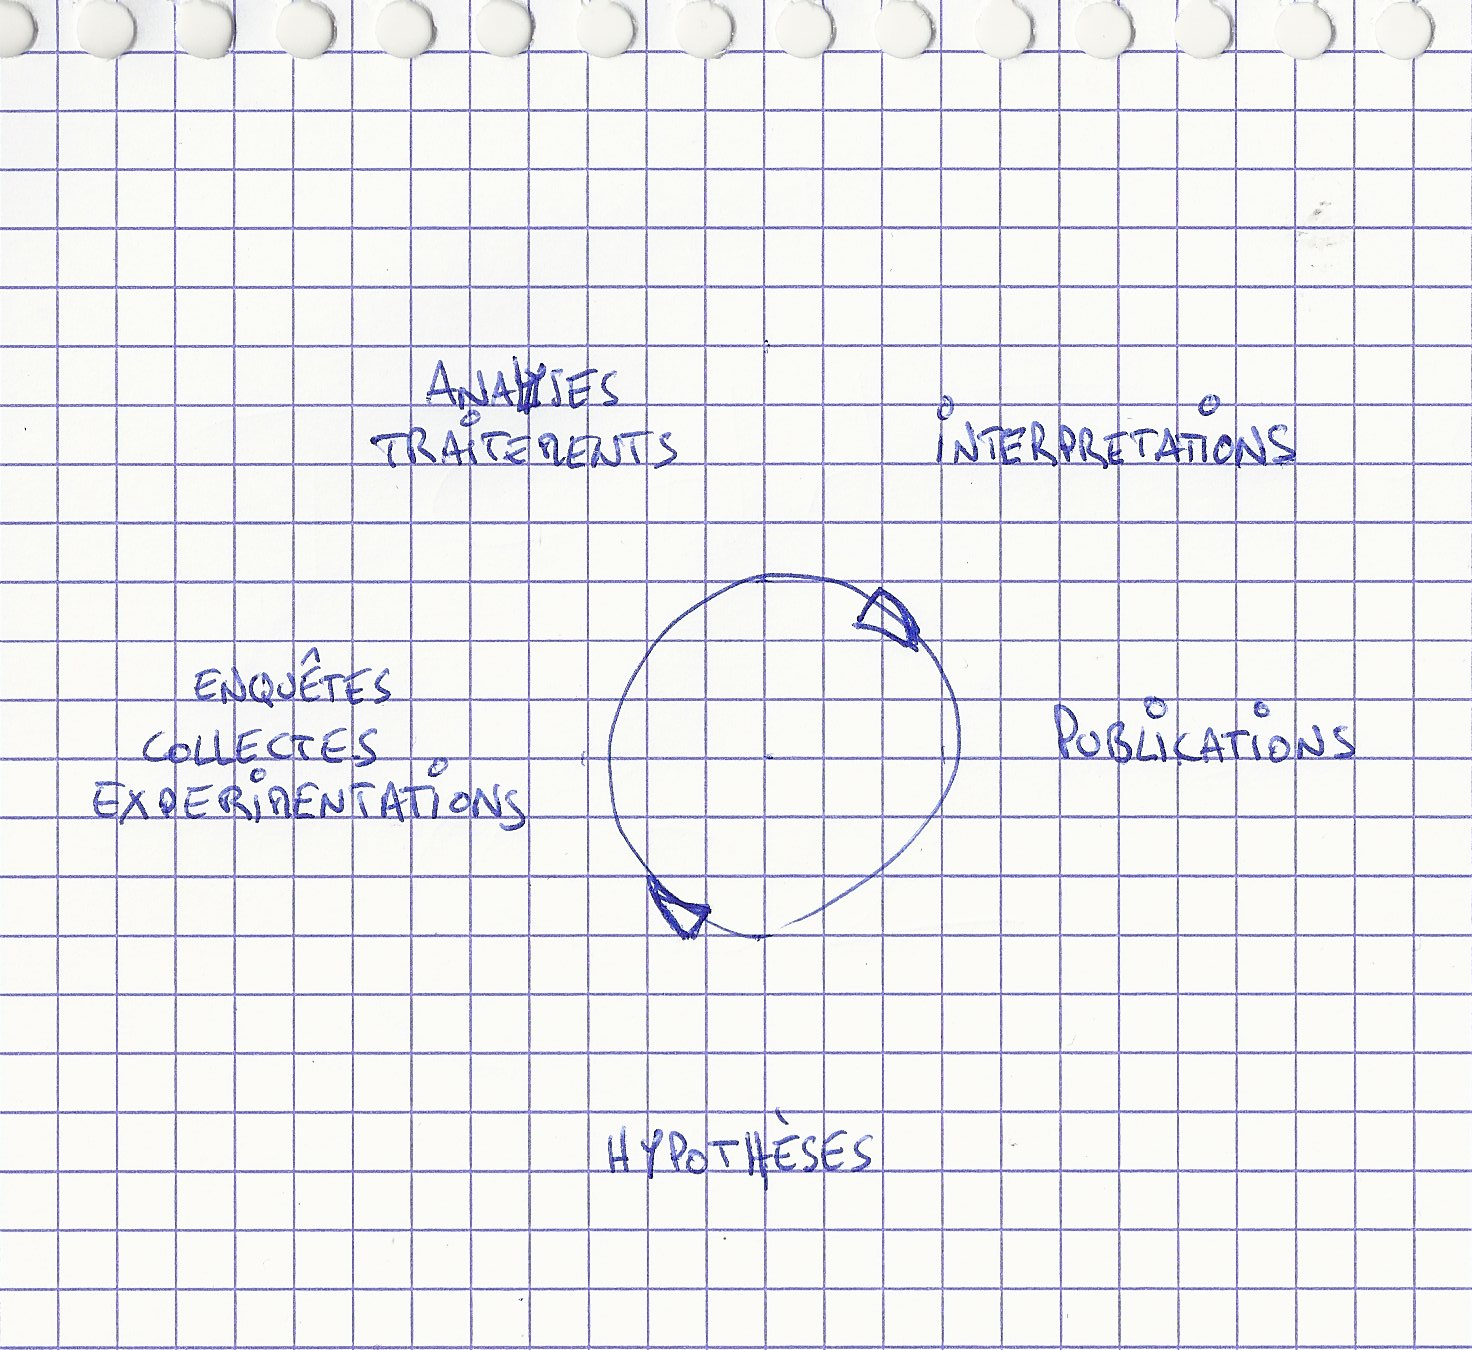 ANALYSES
TRAiTEMENTS
iNTERPRETATiONS
ENQUÊTES
COLLECTES
EXPERiMENTATiONS
PUBLiCATiONS
HYPOTHÈSES